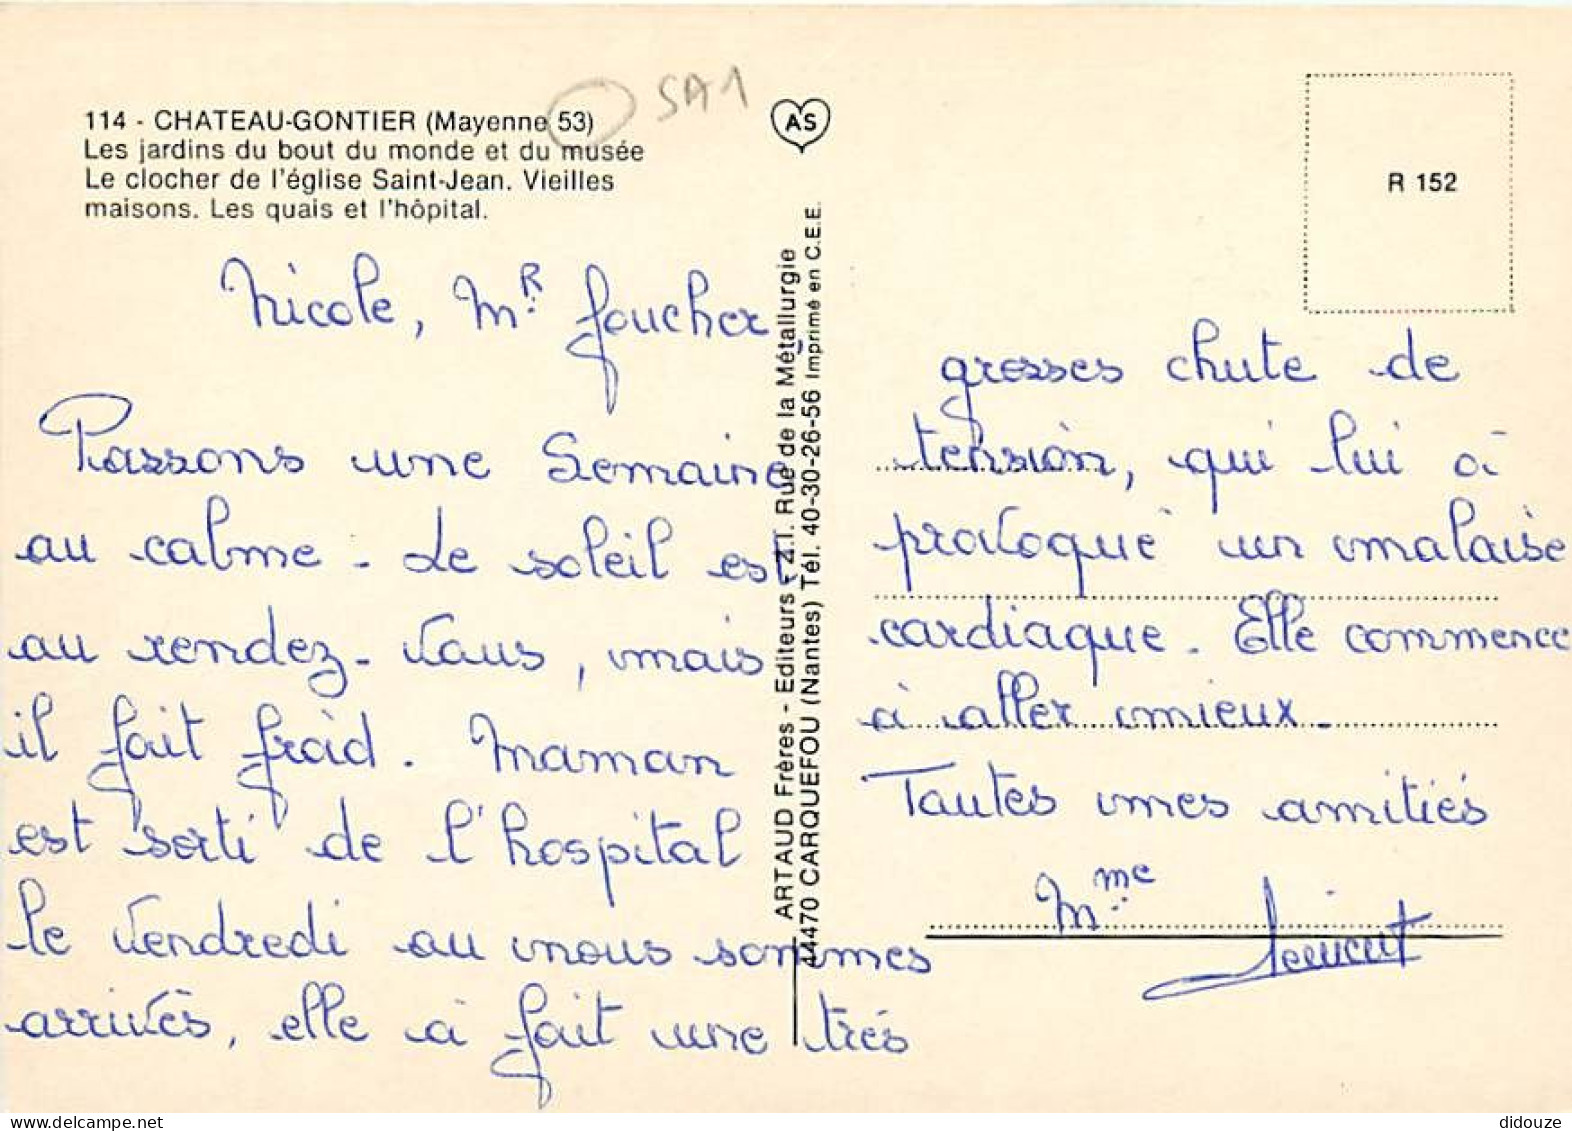 SA1
114 - CHATEAU-GONTIER (Mayenne 53)
Les jardins du bout du monde et du musée
Le clocher de l'église Saint-Jean. Vieilles
maisons. Les quais et l'hôpital.
AS
R 152
ARTAUD Frères - Editeurs - Z.I. Rue de la Métallurgie
44470 CARQUEFOU (Nantes) Tél. 40-30-26-56 Imprimé en C.E.E.
Nicole, Mr. Foucher,
Passons une Semaine
au calme - Le soleil est
au rendez-vous, mais
il fait froid. Maman
est sorti de l'hospital
le vendredi où nous sommes
arrivés, elle à fait une très
grosses chute de
tension, qui lui à
provoqué un malaise
cardiaque. Elle commence
à aller mieux.
Toutes mes amitiés
Mme
didouze